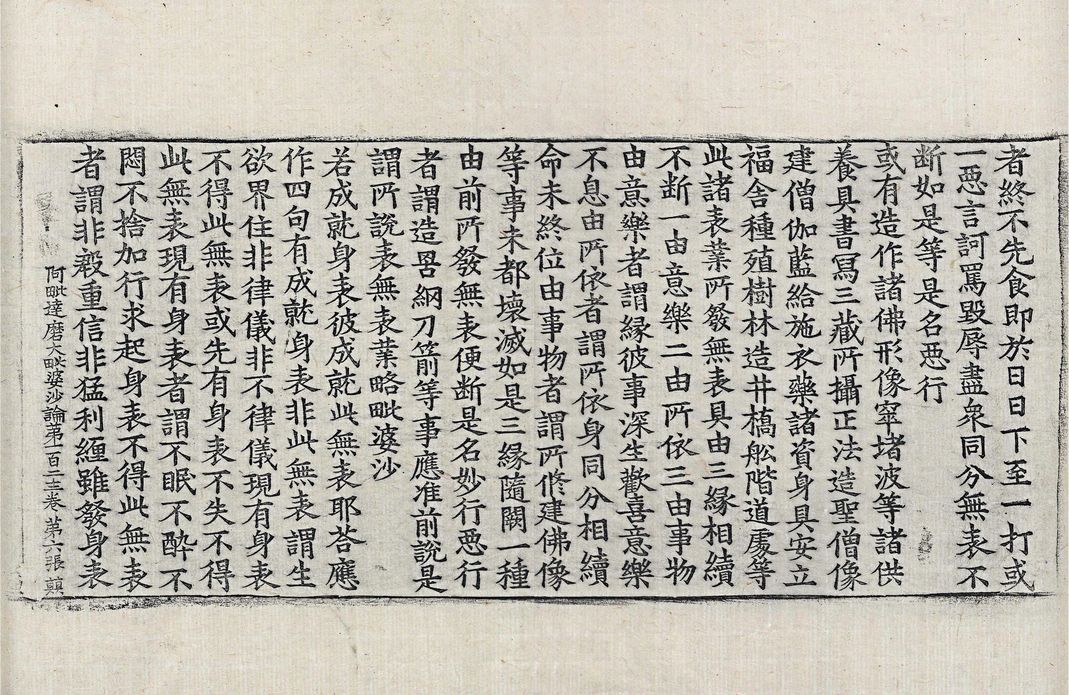 者終不先食即於日日下至一打或
一惡言訶罵毀辱盡衆同分無表不
断如是等是名惡行
或有造作諸佛形像窣堵波等諸供
養具書寫三藏所攝正法造聖僧像
建僧伽藍給施衣藥諸資身具安立
福舍種殖樹林造井橋舩階道處等
此諸表業所發無表具由三緣相續
不断一由意樂二由所依三由事物
由意樂者謂緣彼事深生歡喜意樂
不息由所依者謂所依身同分相續
命未終位由事物者謂所修建佛像
等事未都壞滅如是三緣隨闕一種
由前所發無表便断是名妙行惡行
者謂造罟網刀箭等事應准前說是
謂所說表無表業略毗婆沙
若成就身表彼成就此無表耶荅應
作四句有成就身表非此無表謂生
欲界住非律儀非不律儀現有身表
不得此無表或先有身表不失不得
此無表現有身表者謂不眠不醉不
悶不捨加行求起身表不得此無表
者謂非殷重信非猛利纏雖發身表
阿毗達磨大毗婆沙論第一百二十二卷 第六張